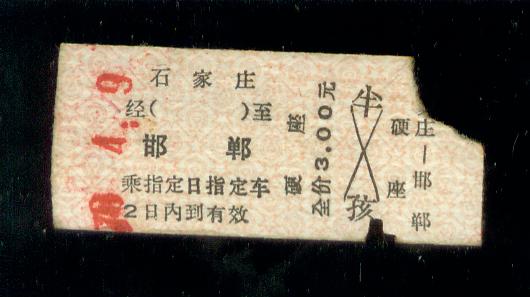 石家庄
经( )至
邯郸
乘指定日指定车
2日内到有效
硬座
全价3.00元
半
孩
硬座
庄—邯郸
4.9